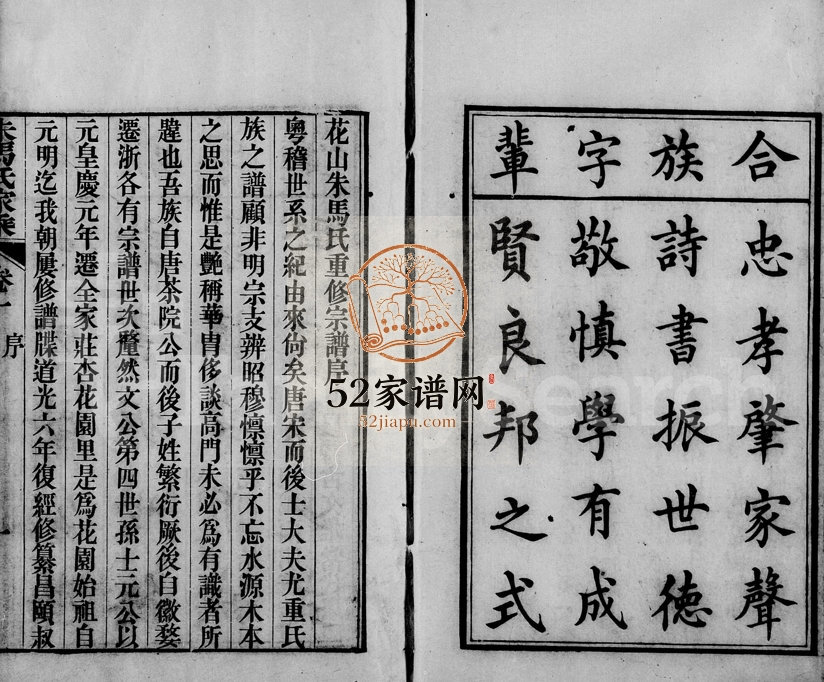 合族字輩
忠孝肇家聲
詩書振世德
敬慎學有成
賢良邦之式
花山朱馬氏重修宗譜序
粵稽世系之紀由來尙矣唐宋而後士大夫尤重氏
族之譜顧非明宗支辨昭穆懍懍乎不忘水源木本
之思而惟是艷稱華胄侈談高門未必爲有識者所
韙也吾族自唐茶院公而後子姓繁衍厥後自徽婺
遷浙各有宗譜世次釐然文公第四世孫士元公以
元皇慶元年遷全家莊杏花園里是爲花園始祖自
元明迄我朝屢修譜牒道光六年復經修纂昌頤叔
朱馬氏家乘
卷一
序
一
52家谱网
52jiapu.com